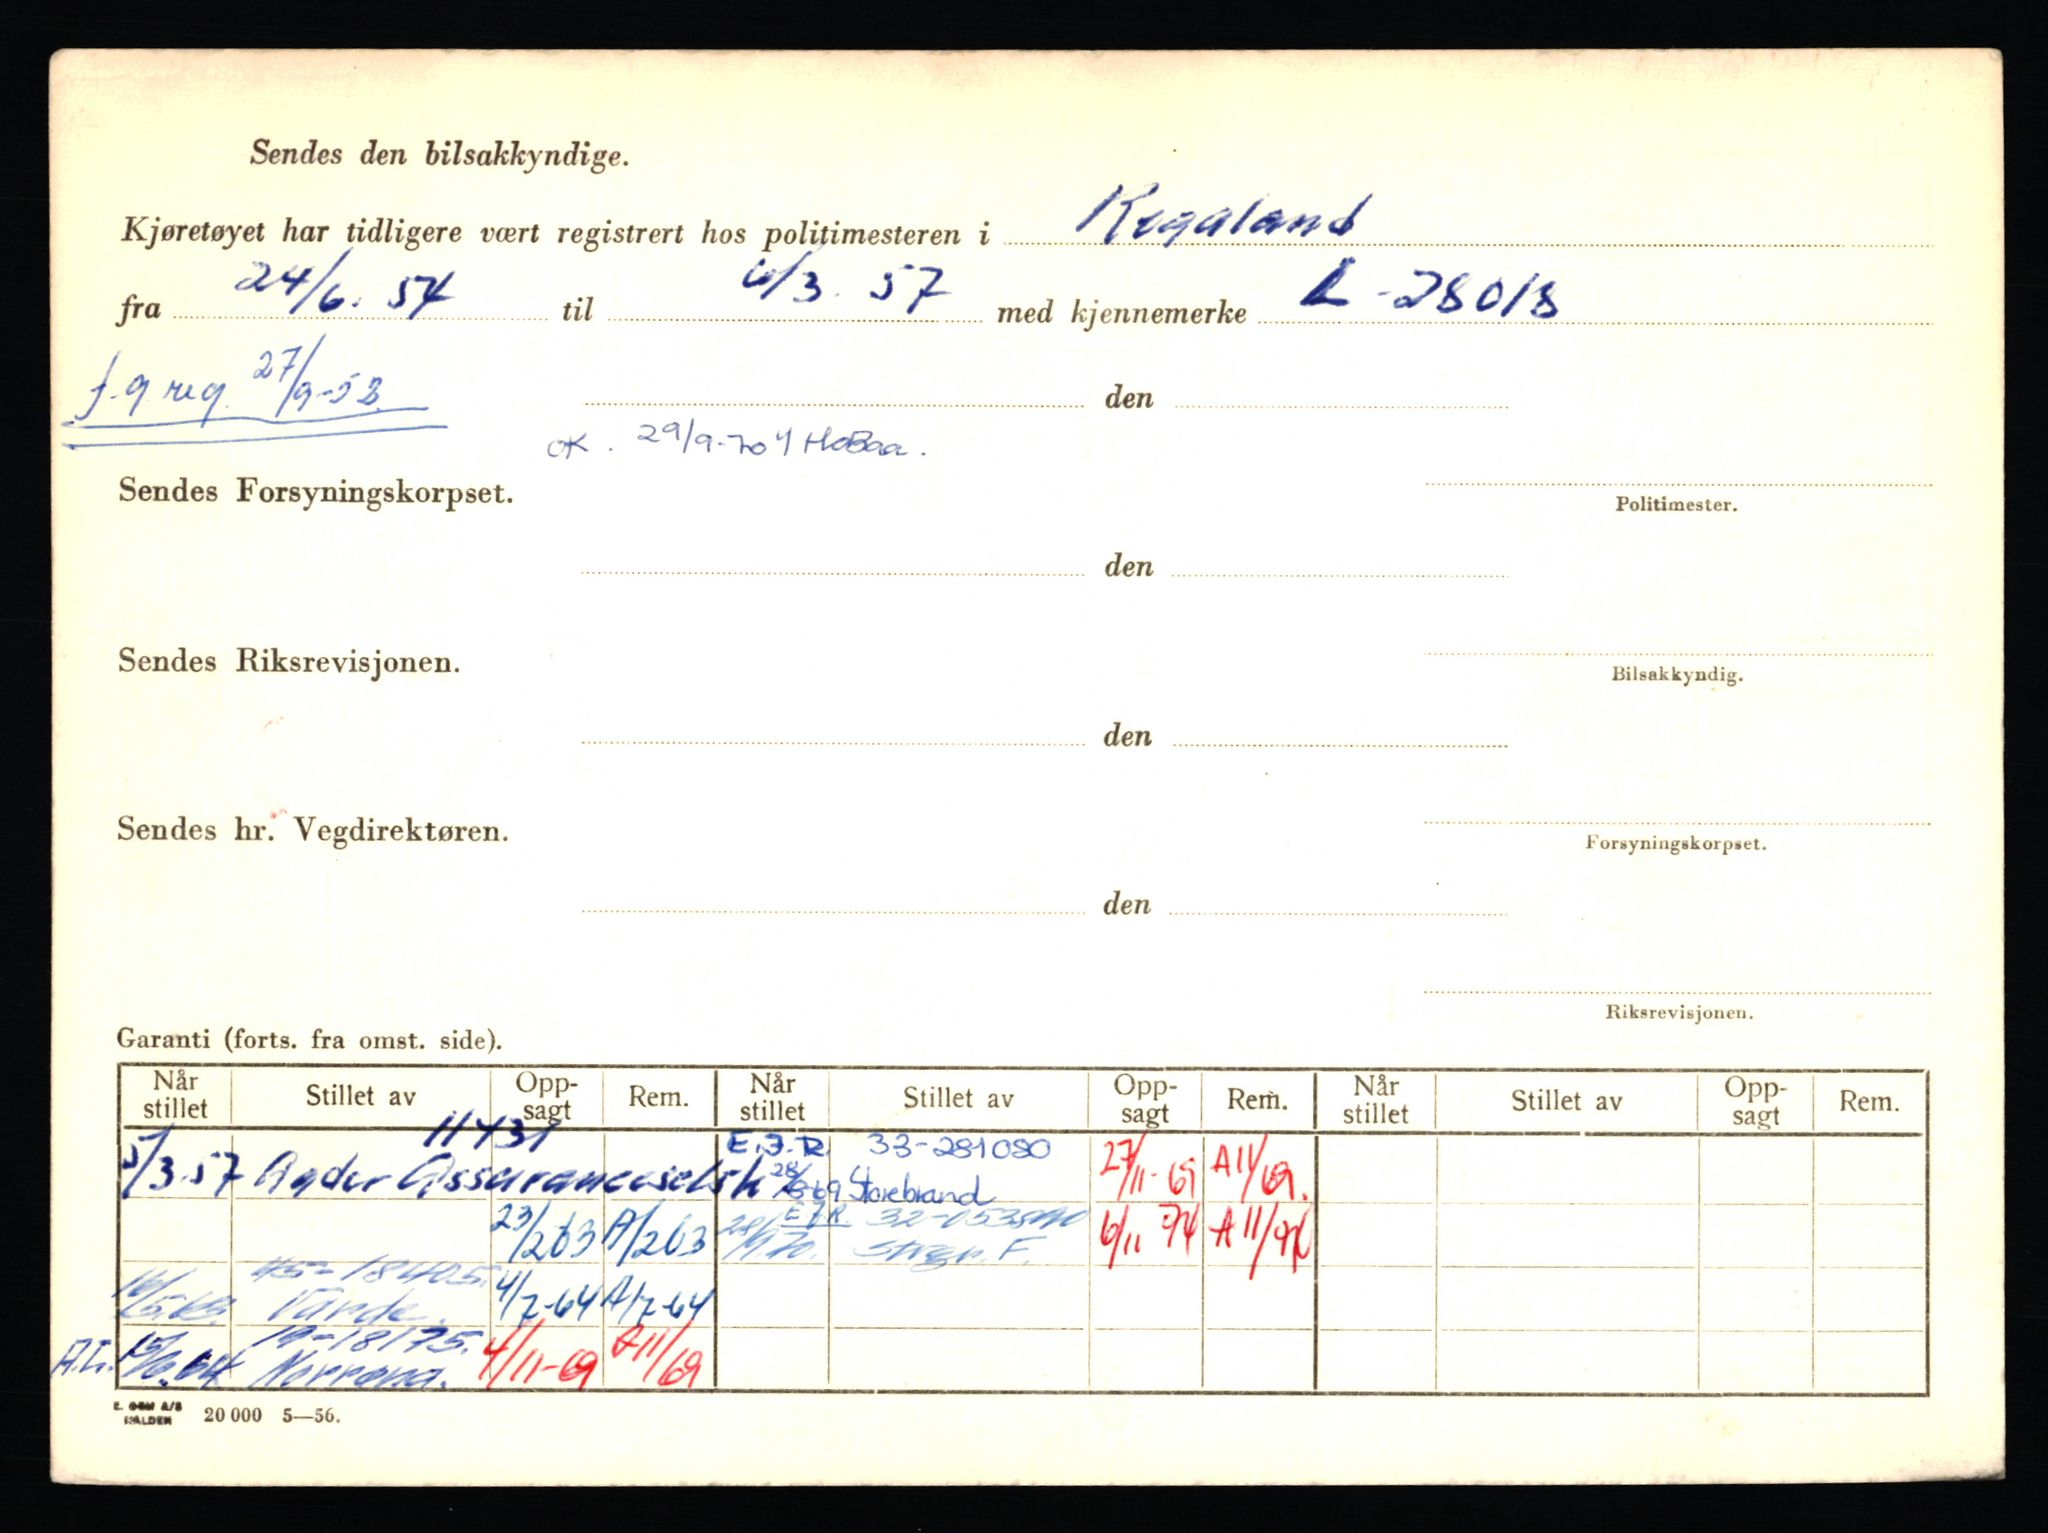 Sendes den bilsakkyndige.
Kjøretøyet har tidligere vært registrert hos politimesteren i Rogaland
fra 24/6. 54 til 6/3. 57 med kjennemerke L-28018
f.g reg. 27/9-52
den
OK. 29/9-70
Sendes Forsyningskorpset.
Politimester.
den
Sendes Riksrevisjonen.
Bilsakkyndig.
den
Sendes hr. Vegdirektøren.
Forsyningskorpset.
den
Riksrevisjonen.
Garanti (forts. fra omst. side).
Når stillet Stillet av Opp-sagt Rem. Når stillet Stillet av Opp-sagt Rem. Når stillet Stillet av Opp-sagt Rem.
11431 E.J.R. 33-281080
5/3.57 Agder Assuranceselsk 28/6-69 Storebrand 27/11-69 A11/69.
23/263 A/263 28/9.70. E.J.R. 6/11 74 A11/74
45-18405.
Varde. 4/7-64 A/7-64
19-18175.
A.G. Norrøna. 4/11-69 A11/69
HALDEN 20 000 5—56.